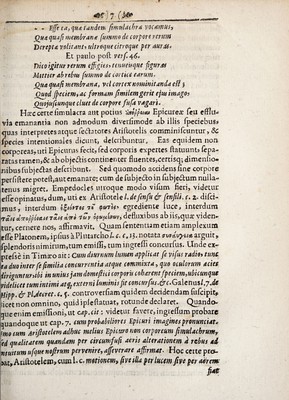 7
Esse ea, quæ tandem simulachra vocamus,
Quæ quasi membranæ summo de corpore rerum
Derepta volitant, ultroque citroque per auras.
Et paulo post vers. 46.
Dico igitur rerum effigies, tenuesque figuras
Mittier ab rebus summo de cortice earum.
Quæ quasi membranæ, vel cortex nominitanda est;
Quod speciem, ac formam similem gerit ejus imago;
Cujuscunque cluet de corpore fusa vagari.
Hæc certe simulacra aut potius Epicureæ seu efflu-
via emanantia non admodum divertimode ab illis speciebus
quas interpretes atque sectatores Aristotelis comminiscuntur, &
species intentionales dicunt, describuntur. Eas equidem non
corporeas, uti Epicurus fecit, sed corporis expertes statuunt separa-
tas tamen, & ab objectis continenter fluentes, certisq; dimensio-
nibus subjectas describunt. Sed quomodo accidens sine corpore
persistere potest, aut emanate; cum de subjecto in subjectum nulla-
tenus migret. Empedocles utroque modo visum fieri, videtur
esse opinatus, dum, uti ex Aristotele l. de sensu & sensili. c. 2. disci-
mus, interdum egrediente luce, interdum
defluxibus ab iis, quæ viden-
tur, cernere nos, affirmavit. Quam sententiam etiam amplexum
esse Platonem, ipsius à Plutarcho l. c. 13. notata arguit,
splendoris nimirum, tum emissi, tum ingressi concursus. Unde ex-
presse in Timæo ait: Cum diurnum lumen applicat se visus radio: tunc
ea duo inter se similia concurrentia atque commixta, quo oculorum acies
diriguntur ibi in unius jam domestici corporis coherent speciem, ubicunque
videlicet tum intimi atq, externi luminis fit concursus, &c. Galenus l. 7. de
Hipp. & Placeret. c. 5. controversiam quidem decidendam suscipit,
licet non omnino, quid ipse statuat, rotunde declaret. Quando-
que enim emissioni, ut cap. cit: videtur favere, ingressum probare
quandoque ut cap. 7. cum probabiliores Epicuri imagines pronunciat.
imo cum Aristotelem adhuc melius Epicuro non corporeum simulachrum,
sed qualitatem quandam per circumfusi aeris alterationem à rebus ad
intuitum usque nostrum pervenire, asseverare affirmat. Hoc certe pro-
bat, Aristotelem, cum l. c. motionem, sive illa per lucem sive per aerem
fiat